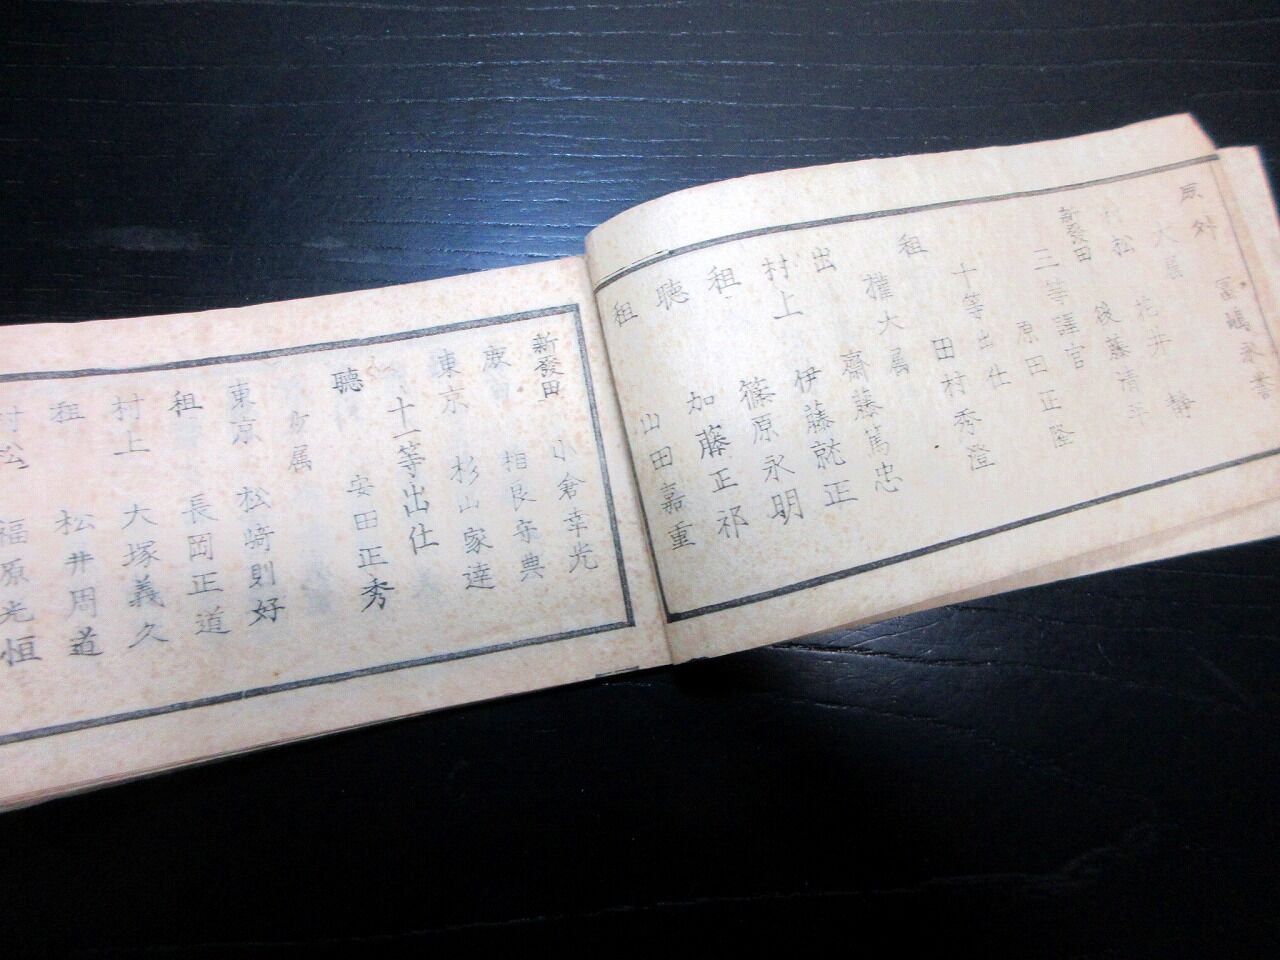 原外 冨嶋永
大属 花井靜
村松 後藤清平
新發田 原田正隆
三等譯官
十等出仕
租 田村秀澄
權大属
出 齋藤篤忠
村上 伊藤就正
租 篠原永明
聽 加藤正祁
租 山田嘉重
新發田 小倉幸光
鹿 相良守典
東京 杉山家達
十一等出仕
聽 安田正秀
少属
東京 松﨑則好
租 長岡正道
村上 大塚義久
租 松井周道
村松 福原光恒